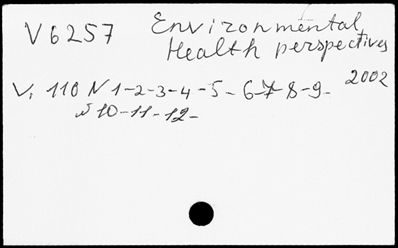 V6257 Environmental
Health perspectives
V. 110 N 1-2-3-4-5-6-7-8-9- 2002
N 10-11-12-